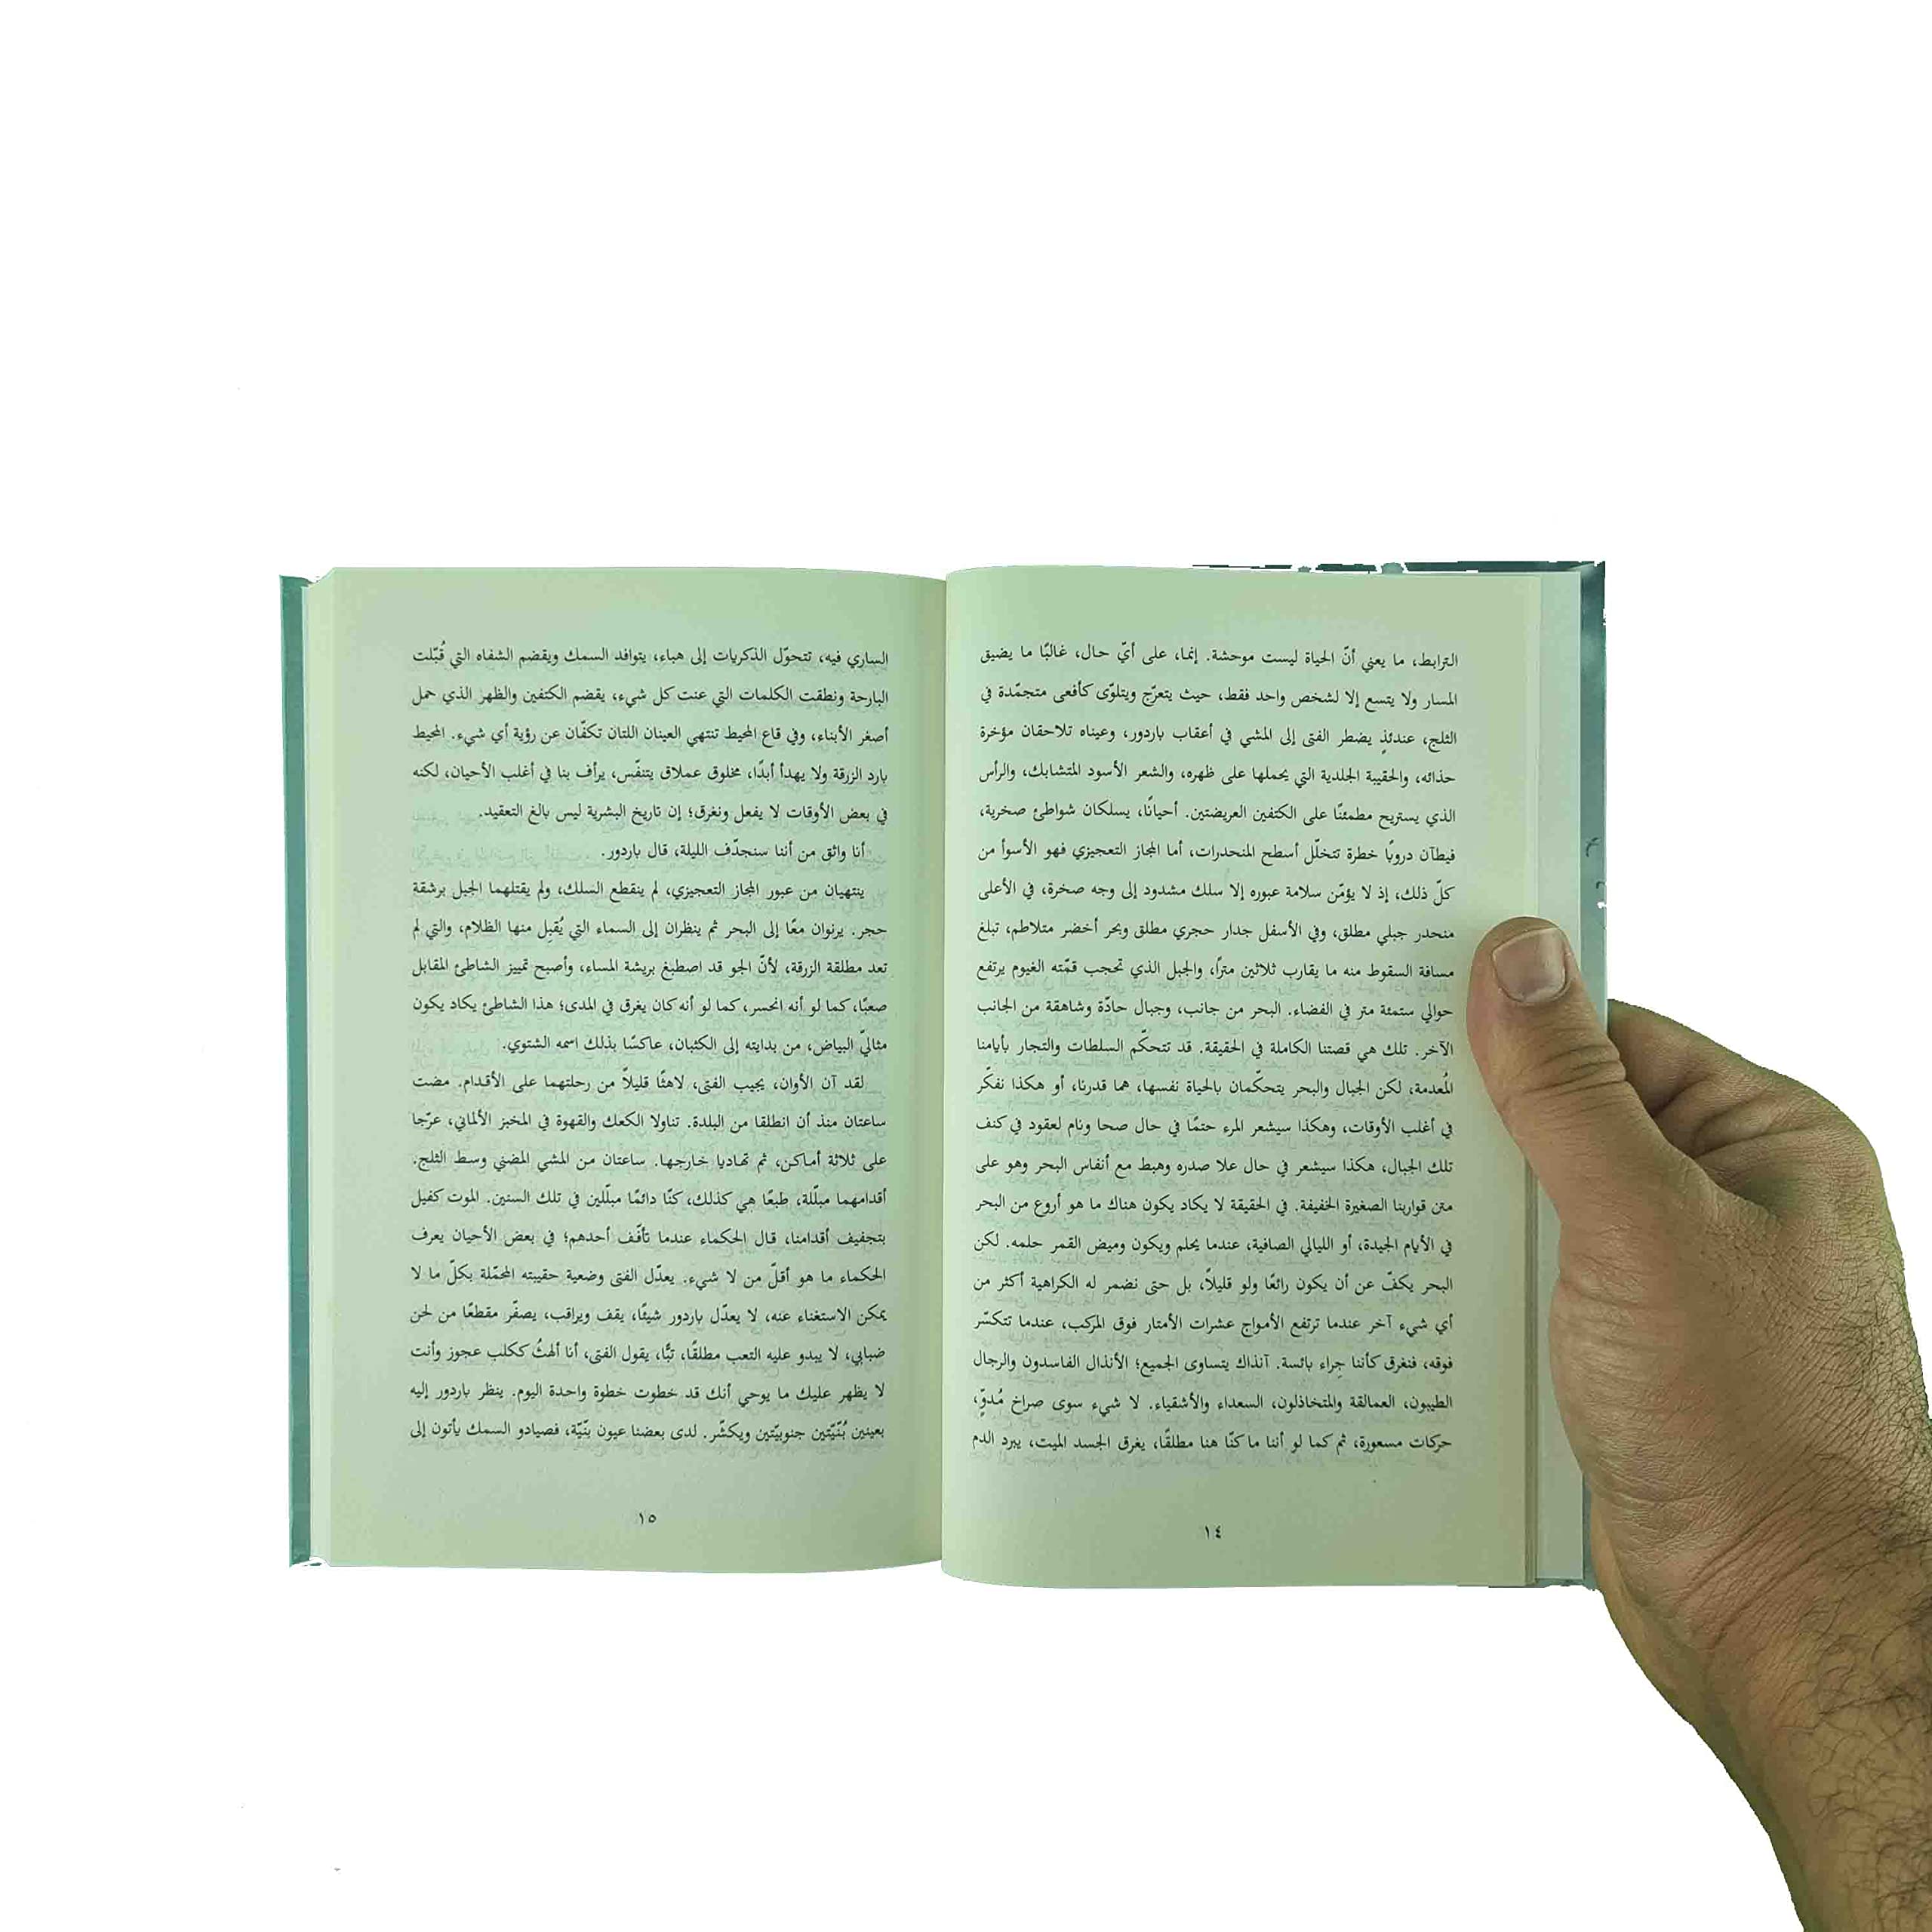 الترابط، ما يعني أنّ الحياة ليست موحشة. إنما، على أيّ حال، غالبًا ما يضيق
المسار ولا يتسع إلا لشخص واحد فقط، حيث يتعرّج ويتلوّى كأفعى متجمّدة في
الثلج، عندئذٍ يضطر الفتى إلى المشي في أعقاب باردور، وعيناه تلاحقان مؤخرة
حذائه، والحقيبة الجلدية التي يحملها على ظهره، والشعر الأسود المتشابك، والرأس
الذي يستريح مطمئنًا على الكتفين العريضتين. أحيانًا، يسلكان شواطئ صخرية،
فيطآن دروبًا خطرة تتخلّل أسطح المنحدرات، أما المجاز التعجيزي فهو الأسوأ من
كلّ ذلك، إذ لا يؤمّن سلامة عبوره إلا سلك مشدود إلى وجه صخرة، في الأعلى
منحدر جبلي مطلق، وفي الأسفل جدار حجري مطلق وبحر أخضر متلاطم، تبلغ
مسافة السقوط منه ما يقارب ثلاثين متراً، والجبل الذي تحجب قمّته الغيوم يرتفع
حوالي ستمئة متر في الفضاء. البحر من جانب، وجبال حادّة وشاهقة من الجانب
الآخر. تلك هي قصتنا الكاملة في الحقيقة. قد تتحكّم السلطات والتجار بأيامنا
المُعدمة، لكن الجبال والبحر يتحكّمان بالحياة نفسها، هما قدرنا، أو هكذا نفكّر
في أغلب الأوقات، وهكذا سيشعر المرء حتمًا في حال صحا ونام لعقود في كنف
تلك الجبال، هكذا سيشعر في حال علا صدره وهبط مع أنفاس البحر وهو على
متن قواربنا الصغيرة الخفيفة. في الحقيقة لا يكاد يكون هناك ما هو أروع من البحر
في الأيام الجيدة، أو الليالي الصافية، عندما يحلم ويكون وميض القمر حلمه. لكن
البحر يكفّ عن أن يكون رائعًا ولو قليلاً، بل حتى نضمر له الكراهية أكثر من
أي شيء آخر عندما ترتفع الأمواج عشرات الأمتار فوق المركب، عندما تتكسّر
فوقه، فنغرق كأننا جِراء بائسة. آنذاك يتساوى الجميع؛ الأنذال الفاسدون والرجال
الطيبون، العمالقة والمتخاذلون، السعداء والأشقياء. لا شيء سوى صراخ مُدوٍّ،
حركات مسعورة، ثم كما لو أننا ما كنّا هنا مطلقًا، يغرق الجسد الميت، يبرد الدم
١٤
الساري فيه، تتحوّل الذكريات إلى هباء، يتوافد السمك ويقضم الشفاه التي قُبّلت
البارحة ونطقت الكلمات التي عنت كل شيء، يقضم الكتفين والظهر الذي حمل
أصغر الأبناء، وفي قاع المحيط تنتهي العينان اللتان تكفّان عن رؤية أي شيء. المحيط
بارد الزرقة ولا يهدأ أبدًا، مخلوق عملاق يتنفّس، يرأف بنا في أغلب الأحيان، لكنه
في بعض الأوقات لا يفعل ونغرق؛ إن تاريخ البشرية ليس بالغ التعقيد.
أنا واثق من أننا سنجدّف الليلة، قال باردور.
ينتهيان من عبور المجاز التعجيزي، لم ينقطع السلك، ولم يقتلهما الجبل برشقة
حجر. يرنوان معًا إلى البحر ثم ينظران إلى السماء التي يُقبِل منها الظلام، والتي لم
تعد مطلقة الزرقة، لأنّ الجو قد اصطبغ بريشة المساء، وأصبح تمييز الشاطئ المقابل
صعبًا، كما لو أنه انحسر، كما لو أنه كان يغرق في المدى؛ هذا الشاطئ يكاد يكون
مثاليّ البياض، من بدايته إلى الكثبان، عاكسًا بذلك اسمه الشتوي.
لقد آن الأوان، يجيب الفتى، لاهثًا قليلاً من رحلتهما على الأقدام. مضت
ساعتان منذ أن انطلقا من البلدة. تناولا الكعك والقهوة في المخبز الألماني، عرّجا
على ثلاثة أماكن، ثم تهاديا خارجها. ساعتان من المشي المضني وسط الثلج.
أقدامهما مبلّلة، طبعًا هي كذلك، كنّا دائمًا مبلّلين في تلك السنين. الموت كفيل
بتجفيف أقدامنا، قال الحكماء عندما تأفّف أحدهم؛ في بعض الأحيان يعرف
الحكماء ما هو أقلّ من لا شيء. يعدّل الفتى وضعية حقيبته المحمّلة بكلّ ما لا
يمكن الاستغناء عنه، لا يعدّل باردور شيئًا، يقف ويراقب، يصفّر مقطعًا من لحن
ضبابي، لا يبدو عليه التعب مطلقًا، تبًّا، يقول الفتى، أنا ألهثُ ككلب عجوز وأنت
لا يظهر عليك ما يوحي أنك قد خطوت خطوة واحدة اليوم. ينظر باردور إليه
بعينين بُنّيّتين جنوبيّتين ويكشّر. لدى بعضنا عيون بنّيّة، فصيادو السمك يأتون إلى
١٥